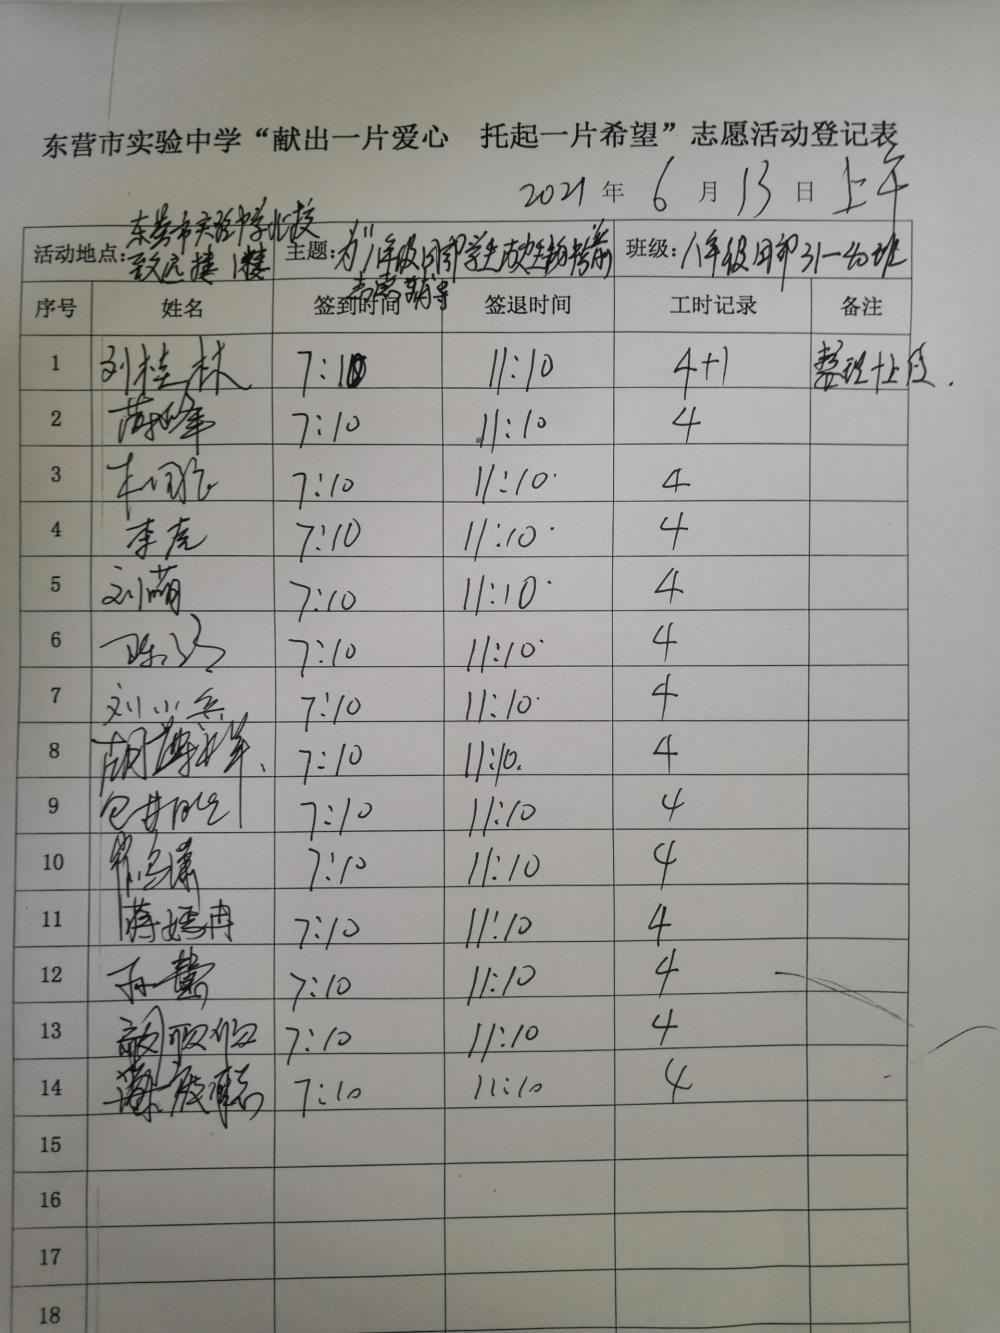 东营市实验中学“献出一片爱心 托起一片希望”志愿活动登记表
2021年6月13日上午
活动地点：东营市实验中学北校致远楼1楼 主题：为八年级日部学生 考前志愿辅导 班级：八年级日部31-40班
序号 姓名 签到时间 签退时间 工时记录 备注
1 刘桂林 7:10 11:10 4+1 整理上传.
2 7:10 11:10 4
3 7:10 11:10 4
4 李虎 7:10 11:10 4
5 刘萌 7:10 11:10 4
6 7:10 11:10 4
7 刘小兵 7:10 11:10 4
8 7:10 11:10. 4
9 7:10 11:10 4
10 7:10 11:10 4
11 蒋嫣冉 7:10 11:10 4
12 孙慧 7:10 11:10 4
13 7:10 11:10 4
14 7:10 11:10 4
15
16
17
18